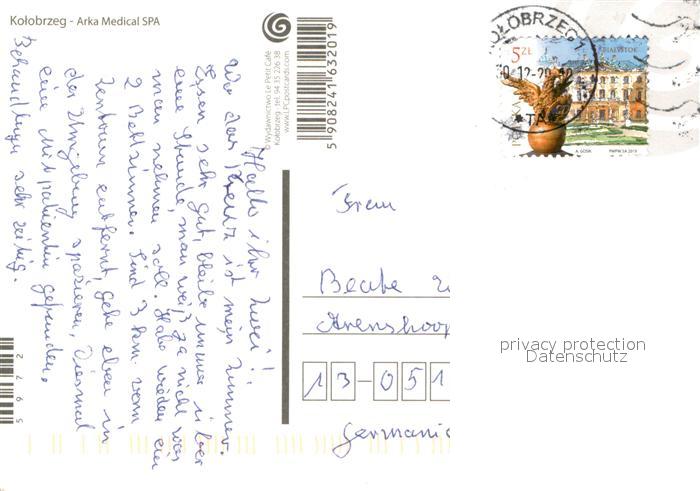 Kołobrzeg - Arka Medical SPA
© Wydawnictwo Le Petit Café
Kołobrzeg tel 94 35 226 38
www.LPCpostcards.com
5 908241 632019
5972
KOŁOBRZEG 1
5 ZŁ
BIAŁYSTOK
A. GOSIK
PWPW SA 2019
Hallo ihr Zwei!
Wo das Kreuz ist mein Zimmer.
Essen sehr gut, bleibe immer über
eine Stunde, man weiß ja nicht was
man nehmen soll. Habe wieder ein
2 Bettzimmer. Sind 3 km vom
Zentrum entfernt, gehe eber in
der Umgebung spazieren, Diesmal
eine Mitpatientin gefunden,
Behandlungen sehr zeitig.
Frau
Beate
Arenshoop
13-051
Germanic
privacy protection
Datenschutz